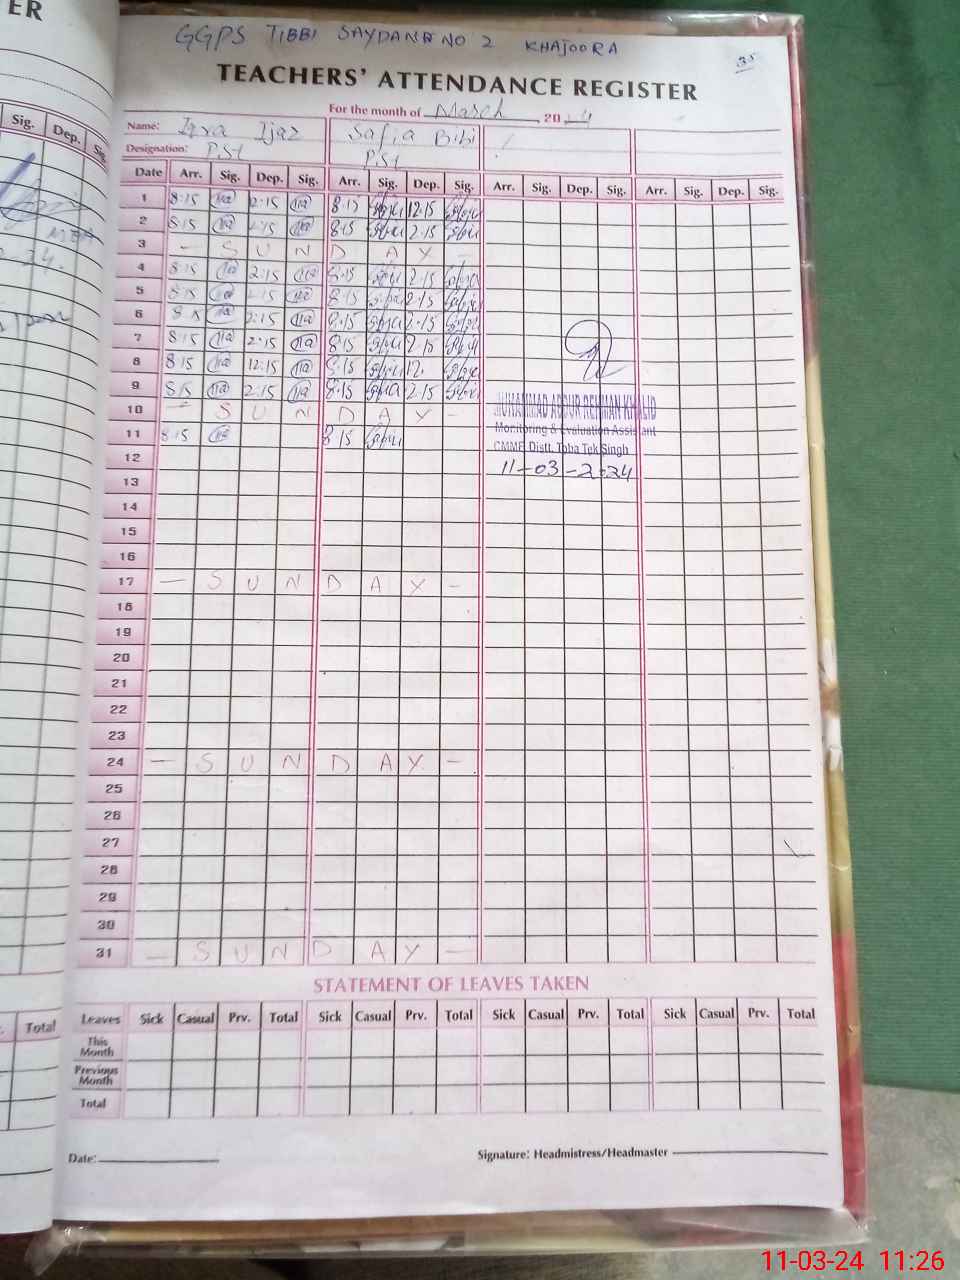 ER
GGPS TIBBI SAYDANA NO 2 KHAJOORA
35
TEACHERS' ATTENDANCE REGISTER
For the month of March, 2024
Name: Iqra Ijaz Safia Bibi
Designation: PST PST
Sig. Dep. Sig.
Date Arr. Sig. Dep. Sig. Arr. Sig. Dep. Sig. Arr. Sig. Dep. Sig. Arr. Sig. Dep. Sig.
1 8:15 2:15 8:15 12:15
2 8:15 2:15 8:15 2:15
3 - S U N D A Y -
4 8:15 2:15 8:15 2:15
5 8:15 2:15 8:15 2:15
6 8:15 2:15 8:15 2:15
7 8:15 2:15 8:15 2:15
8 8:15 12:15 8:15 12
9 8:15 2:15 8:15 2:15
10 - S U N D A Y -
MUHAMMAD ABDUR REHMAN KHALID
11 8:15 8:15
Monitoring & Evaluation Assistant
12
CMMF Distt. Toba Tek Singh
11-03-2024
13
14
15
16
17 - S U N D A Y -
18
19
20
21
22
23
24 - S U N D A Y -
25
26
27
28
29
30
31 - S U N D A Y -
STATEMENT OF LEAVES TAKEN
Total
Leaves Sick Casual Prv. Total Sick Casual Prv. Total Sick Casual Prv. Total Sick Casual Prv. Total
This Month
Previous Month
Total
Date:
Signature: Headmistress/Headmaster
11-03-24 11:26